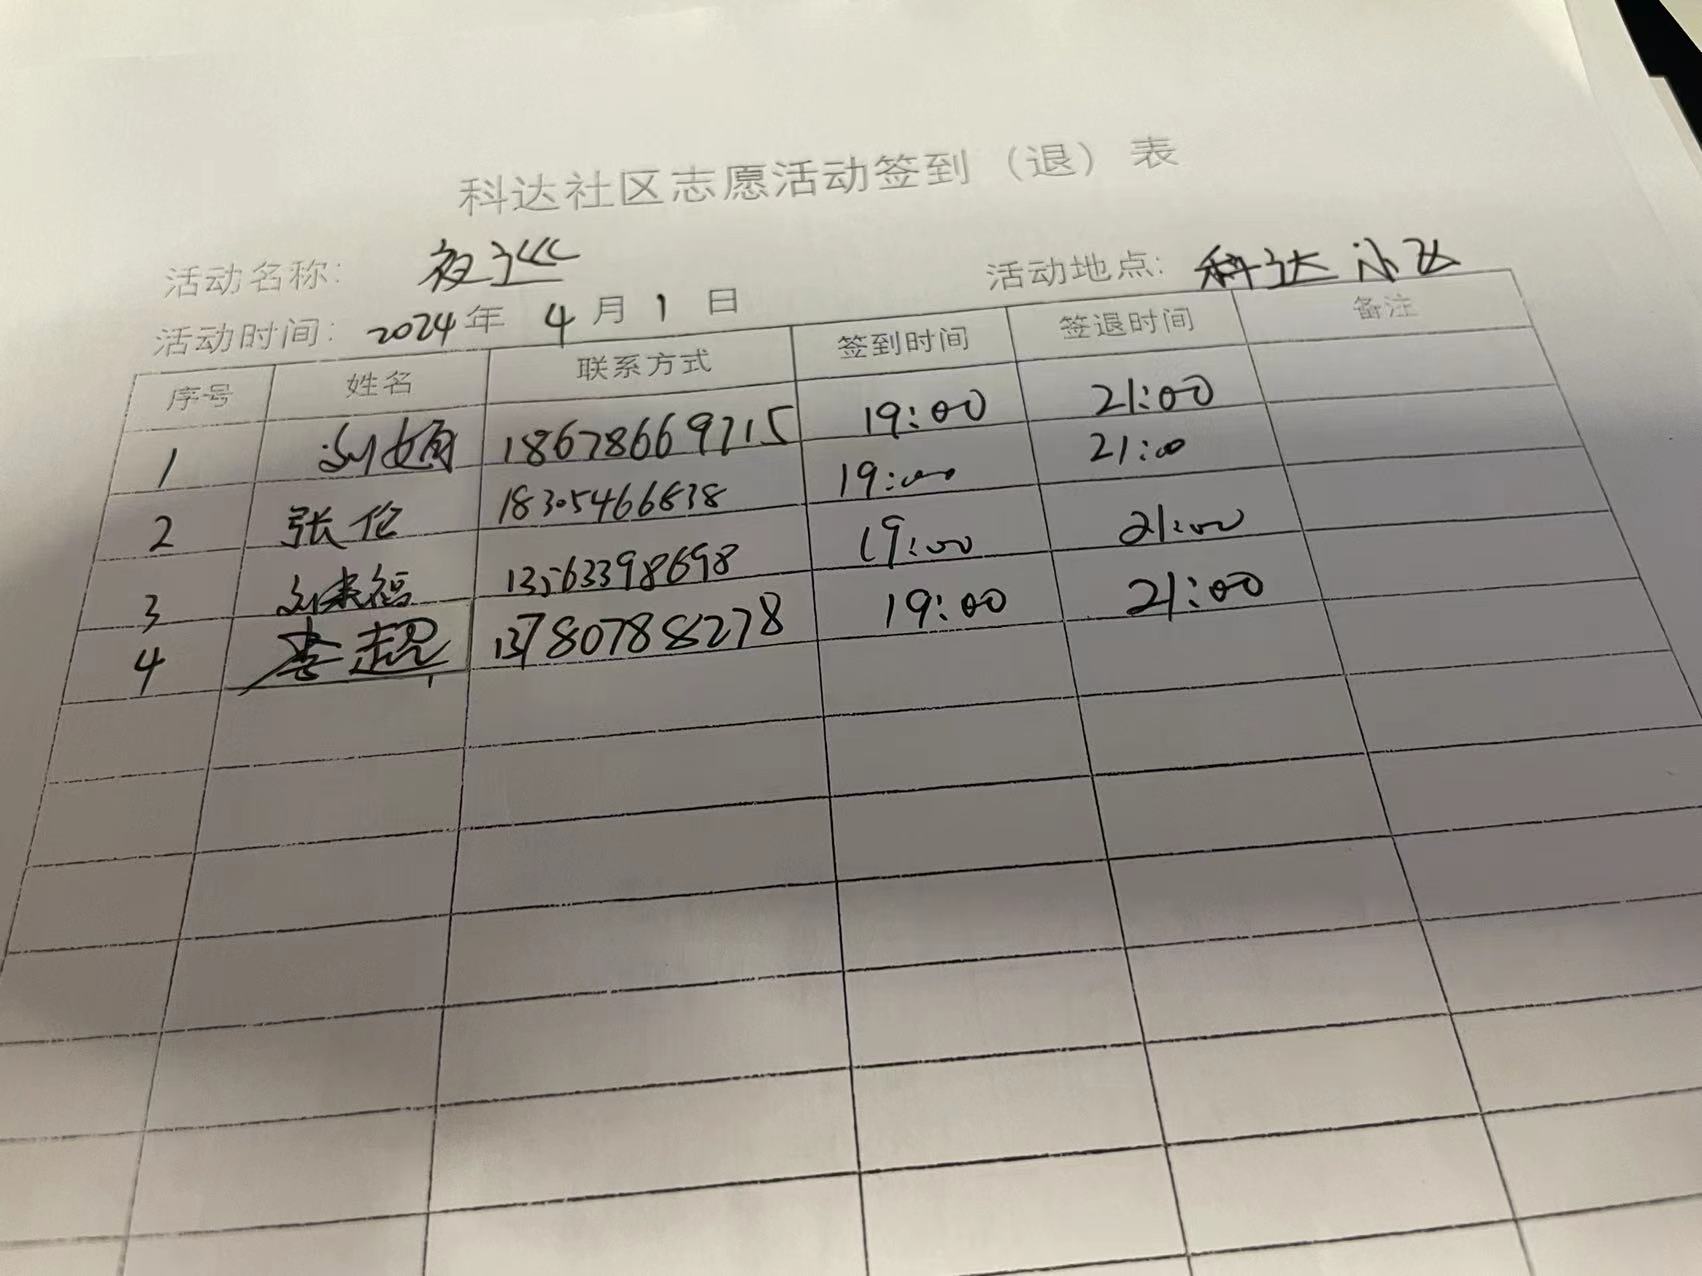 科达社区志愿活动签到（退）表
活动名称: 夜巡 活动地点: 科达小区
活动时间: 2024年 4月 1日
序号 姓名 联系方式 签到时间 签退时间 备注
1 刘娟 18678669715 19:00 21:00
2 张伦 18305466838 19:00 21:00
3 刘来福 13563398698 19:00 21:00
4 李超 13780788278 19:00 21:00